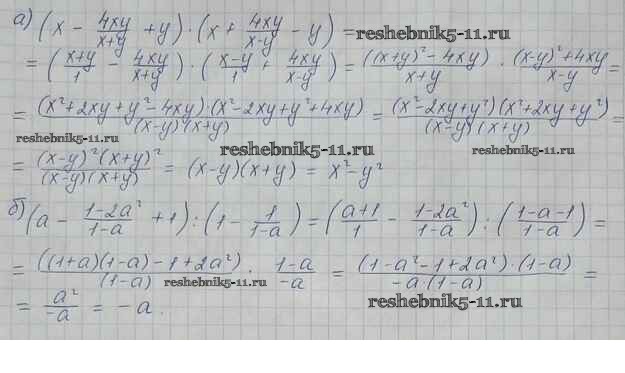 а) (x - 4xy/(x+y) + y) · (x + 4xy/(x-y) - y) = reshebnik5-11.ru
= ((x+y)/1 - 4xy/(x+y)) · ((x-y)/1 + 4xy/(x-y)) = ((x+y)² - 4xy)/(x+y) · ((x-y)² + 4xy)/(x-y) =
= (x² + 2xy + y² - 4xy)·(x² - 2xy + y² + 4xy)/((x-y)(x+y)) = (x² - 2xy + y²)(x² + 2xy + y²)/((x-y)(x+y)) =
reshebnik5-11.ru reshebnik5-11.ru reshebnik5-11.ru
= (x-y)²(x+y)²/((x-y)(x+y)) = (x-y)(x+y) = x² - y²
б) (a - (1-2a²)/(1-a) + 1) : (1 - 1/(1-a)) = ((a+1)/1 - (1-2a²)/(1-a)) : ((1-a-1)/(1-a)) =
= ((1+a)(1-a) - 1 + 2a²)/(1-a) · (1-a)/(-a) = (1 - a² - 1 + 2a²)·(1-a)/(-a·(1-a)) =
reshebnik5-11.ru
= a²/(-a) = -a. reshebnik5-11.ru